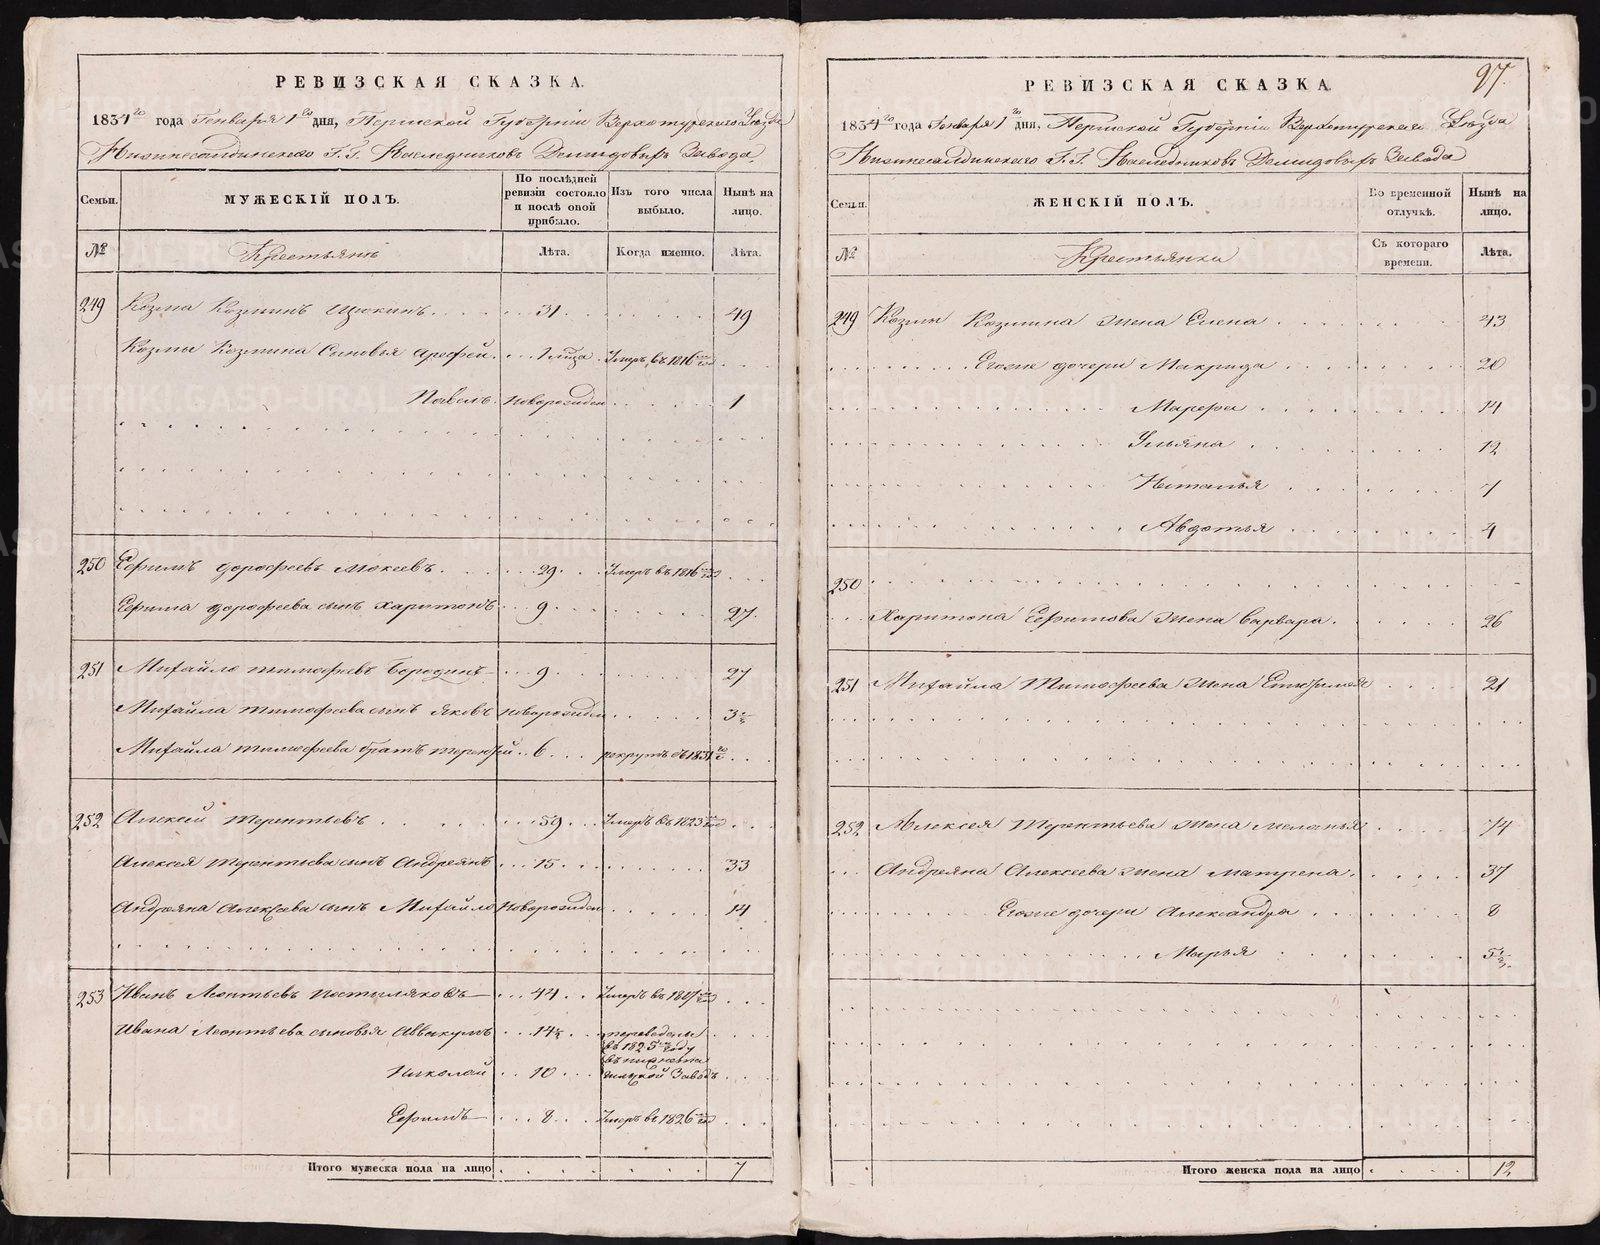 РЕВИЗСКАЯ СКАЗКА.
1834го года Генваря 1го дня, Пермской Губерніи Верхотурскаго Уѣзда
Нижнесалдинскаго Г. Г. Наследниковъ Демидовыхъ Завода
Семьи.
МУЖЕСКІЙ ПОЛЪ.
По послѣдней ревизіи состояло и послѣ оной прибыло.
Изъ того числа выбыло.
Нынѣ на лицо.
№
Крестьянъ
Лѣта.
Когда именно.
Лѣта.
249 Козма Козминъ Щюкинъ 31 49
Козмы Козмина Сыновья Арефей Умеръ въ 1816 году
Павелъ Новорожден 1
250 Ефимъ Дорофеевъ Мокеевъ 29 Умеръ въ 1816 году
Ефима Дорофеева сынъ Харитонъ 9 27
251 Михайло Тимофеевъ Бородинъ 9 27
Михайла Тимофеева сынъ Яковъ Новорожден 3
Михайла Тимофеева братъ Терентей 6 рекрутъ въ 1831го
252 Алексей Терентьевъ 59 Умеръ въ 1823 году
Алексея Терентьева сынъ Андреянъ 15 33
Андреяна Алексеева сынъ Михайло Новорожден 14
253 Иванъ Леонтьевъ Постыляковъ 44 Умеръ въ 1817 году
Ивана Леонтьева сыновья Аввакумъ 14½ переведены
въ 1825 году
Николай 10 въ Нижнета
гилской Заводъ
Ефимъ 8 Умеръ въ 1826 году
Итого мужеска пола на лицо 7
97.
РЕВИЗСКАЯ СКАЗКА.
1834го года Генваря 1го дня, Пермской Губерніи Верхотурскаго Уѣзда
Нижнесалдинскаго Г. Г. Наследниковъ Демидовыхъ Завода
Семьи.
ЖЕНСКІЙ ПОЛЪ.
Во временной отлучкѣ.
Нынѣ на лицо.
№
Крестьянки
Съ котораго времени.
Лѣта.
249 Козмы Козмина жена Елена 43
Егоже дочери Макрида 20
Марфа 14
Ульяна 12
Наталья 7
Авдотья 4
250
Харитона Ефимова жена Варвара 26
251 Михайла Тимофеева жена 21
252 Алексея Терентьева жена Меланья 74
Андреяна Алексеева жена Матрена 37
Егоже дочери Александра 8
Марья 5
Итого женска пола на лицо 12
METRIKI.GASO-URAL.RU